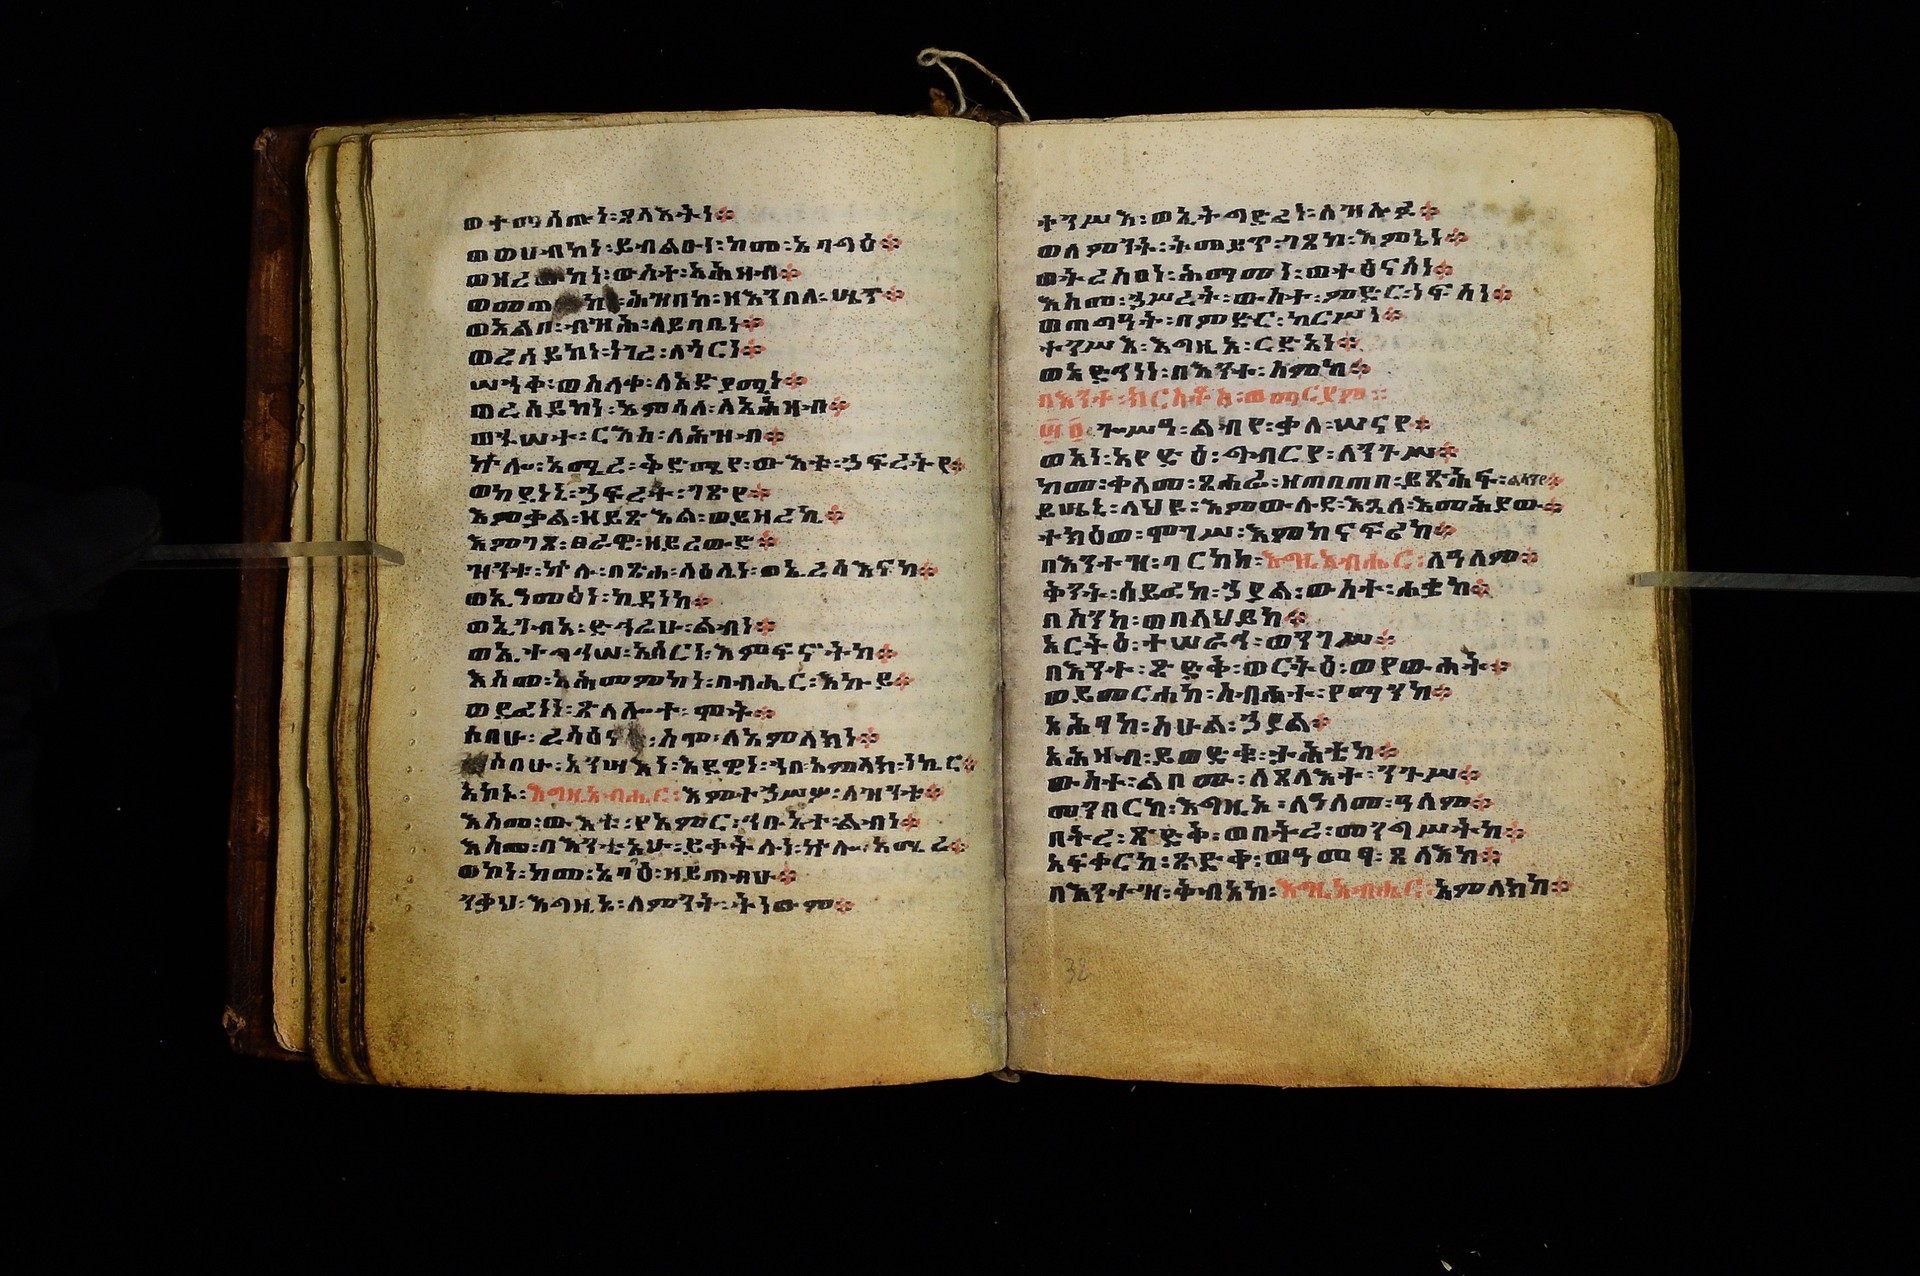 ወተማሰጡነ፡ጸላእትነ፨
ወወሀብከነ፡ይብልዑነ፡ከመ፡አባግዕ፨
ወዝረ ከነ፡ውስተ፡አሕዛብ፨
ወመጠ ከ፡ሕዝበከ፡ዘእንበለ፡ሤጥ፨
ወአልቦ፡ብዝኅ፡ለይባቤነ፨
ወረሰይከነ፡ነገረ፡ለጎርነ፨
ሠላቀ፡ወስላቀ፡ለአድያሚነ፨
ወረሰይከነ፡አምሳለ፡ለአሕዛብ፨
ወኁሠተ፡ርእስ፡ለሕዝብ፨
ኵሎ፡አሚረ፡ቅድሜየ፡ውእቱ፡ኃፍረትየ፨
ወከደነኒ፡ኃፍረተ፡ገጽየ፨
እምቃል፡ዘይጽእል፡ወይዘረኪ፨
እምገጸ፡ፀራዊ፡ዘይረውድ፨
ዝንቱ፡ኵሉ፡በጽሐ፡ላዕሌነ፡ወኢረሳእናከ፨
ወኢዓመፅነ፡ኪዳነከ፨
ወኢገብአ፡ድኅሬሁ፡ልብነ፨
ወኢተግኅሠ፡አሰርነ፡እምፍኖትከ፨
እስመ፡አሕመምከነ፡በብሔር፡እኩይ፨
ወደፈነነ፡ጽላሎተ፡ሞት፨
ሶበሁ፡ረሳዕነ ፡ስሞ፡ለአምላክነ፨
ሶበሁ፡አንሣእነ፡እደዊነ፡ኀበ፡አምላክ፡ነኪር፨
አኮኑ፡እግዚአብሔር፡እምተኃሠሦ፡ለዝንቱ፨
እስመ፡ውእቱ፡የአምር፡ኀቡአተ፡ልብነ፨
እስመ፡በእንቲአሁ፡ይቀትሉነ፡ኵሎ፡አሚረ፨
ወኮነ፡ከመ፡አባግዕ፡ዘይጠብሁ፨
ንቃህ፡እግዚኦ፡ለምንት፡ትነውም፨
ተንሥእ፡ወኢትግድፈነ፡ለዝሉፉ፨
ወለምንት፡ትመይጥ፡ገጸከ፡እምኔነ፨
ወትረስዐነ፡ሕማመነ፡ወተፅናሰነ፨
እስመ፡ኃሥረት፡ውስተ፡ምድር፡ነፍስነ፨
ወጠግዓት፡በምድር፡ከርሥነ፨
ተንሥእ፡እግዚኦ፡ርድአነ፨
ወአድኅነነ፡በእንተ፡ስምከ፨
በእንተ፡ክርስቶስ፡ወማርያም፡
፵፬ ጐሥዓ፡ልብየ፡ቃለ፡ሠናየ፨
ወአነ፡አየድዕ፡ግብርየ፡ለንጉሥ፨
ከመ፡ቀለመ፡ጸሐፊ፡ዘጠበጠበ፡ይጽሕፍ፡ልሳንየ፨
ይሤኒ፡ላህዩ፡እምውሉደ፡እጓለ፡እመሕያው፨
ተክዕወ፡ሞገሥ፡እምከናፍሪከ፨
በእንተዝ፡ባርከከ፡እግዚአብሔር፡ለዓለም፨
ቅንት፡ሰይፈከ፡ኃያል፡ውስተ፡ሐቌከ፨
በስንከ፡ወበላህይከ፨
አርትዕ፡ተሠራኅ፡ወንገሥ፨
በእንተ፡ጽድቅ፡ወርትዕ፡ወየውሐት፨
ወይመርሐከ፡ስብሐተ፡የማንከ፨
አሕፃከ፡ስሁል፡ኃያል፨
አሕዛብ፡ይወድቁ፡ታሕቴከ፨
ውስተ፡ልበሙ፡ለጸላእተ፡ንጉሥ፨
መንበርከ፡እግዚኦ፡ለዓለመ፡ዓለም፨
በትረ፡ጽድቅ፡ወበትረ፡መንግሥትከ፨
አፍቀርከ፡ጽድቀ፡ወዓመፃ፡ጸላእከ፨
በእንተዝ፡ቀብአከ፡እግዚአብሔር፡አምላክከ፨
32